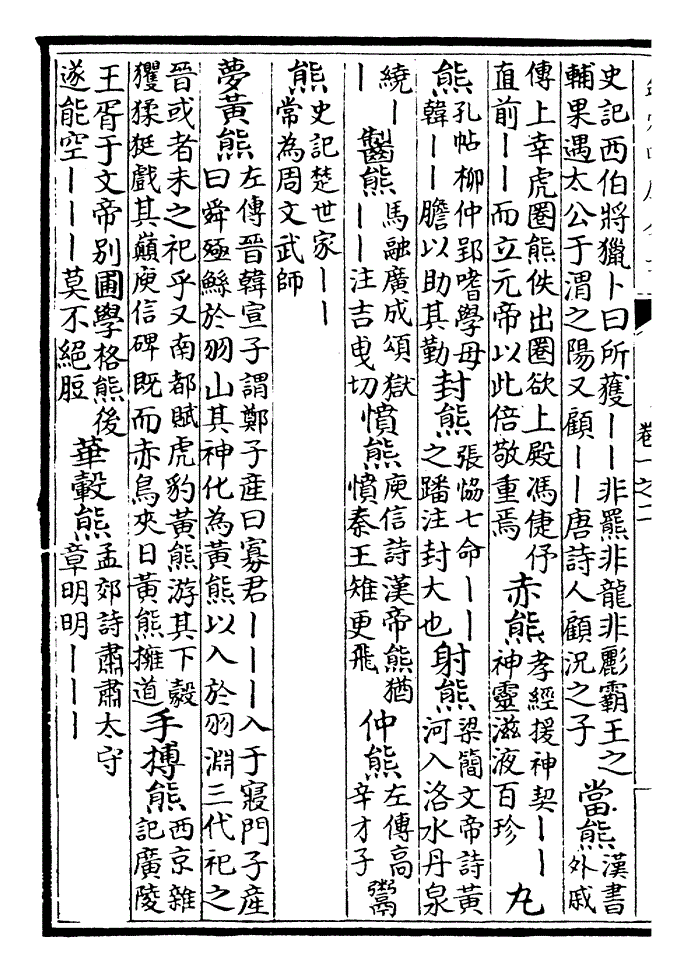 卷一之二
史記西伯將獵卜曰所獲丨丨非羆非龍非彲霸王之
輔果遇太公于渭之陽又顧丨丨唐詩人顧況之子
當熊
漢書
外戚
傳上幸虎圈熊佚出圈欲上殿馮倢伃
直前丨丨而立元帝以此倍敬重焉
赤熊
孝經援神契丨丨
神靈滋液百珍
九
熊
孔帖柳仲郢嗜學母
韓丨丨膽以助其勤
封熊
張協七命丨丨
之蹯注封大也
射熊
梁簡文帝詩黃
河入洛水丹泉
繞丨
丨
熊
馬融廣成頌獄
丨丨注吉曳切
憤熊
庾信詩漢帝熊猶
憤秦王雉更飛
仲熊
左傳高
辛才子
鬻
熊
史記楚世家丨丨
常為周文武師
夢黃熊
左傳晉韓宣子謂鄭子產曰寡君丨丨丨入于寢門子產
曰舜殛鯀於羽山其神化為黃熊以入於羽淵三代祀之
晉或者未之祀乎又南都賦虎豹黃熊游其下豰
玃猱挺戲其巔庾信碑既而赤烏夾日黃熊擁道
手搏熊
西京雜
記廣陵
王胥于文帝別圃學格熊後
遂能空丨丨丨莫不絕脰
華轂熊
孟郊詩肅肅太守
章明明丨丨丨